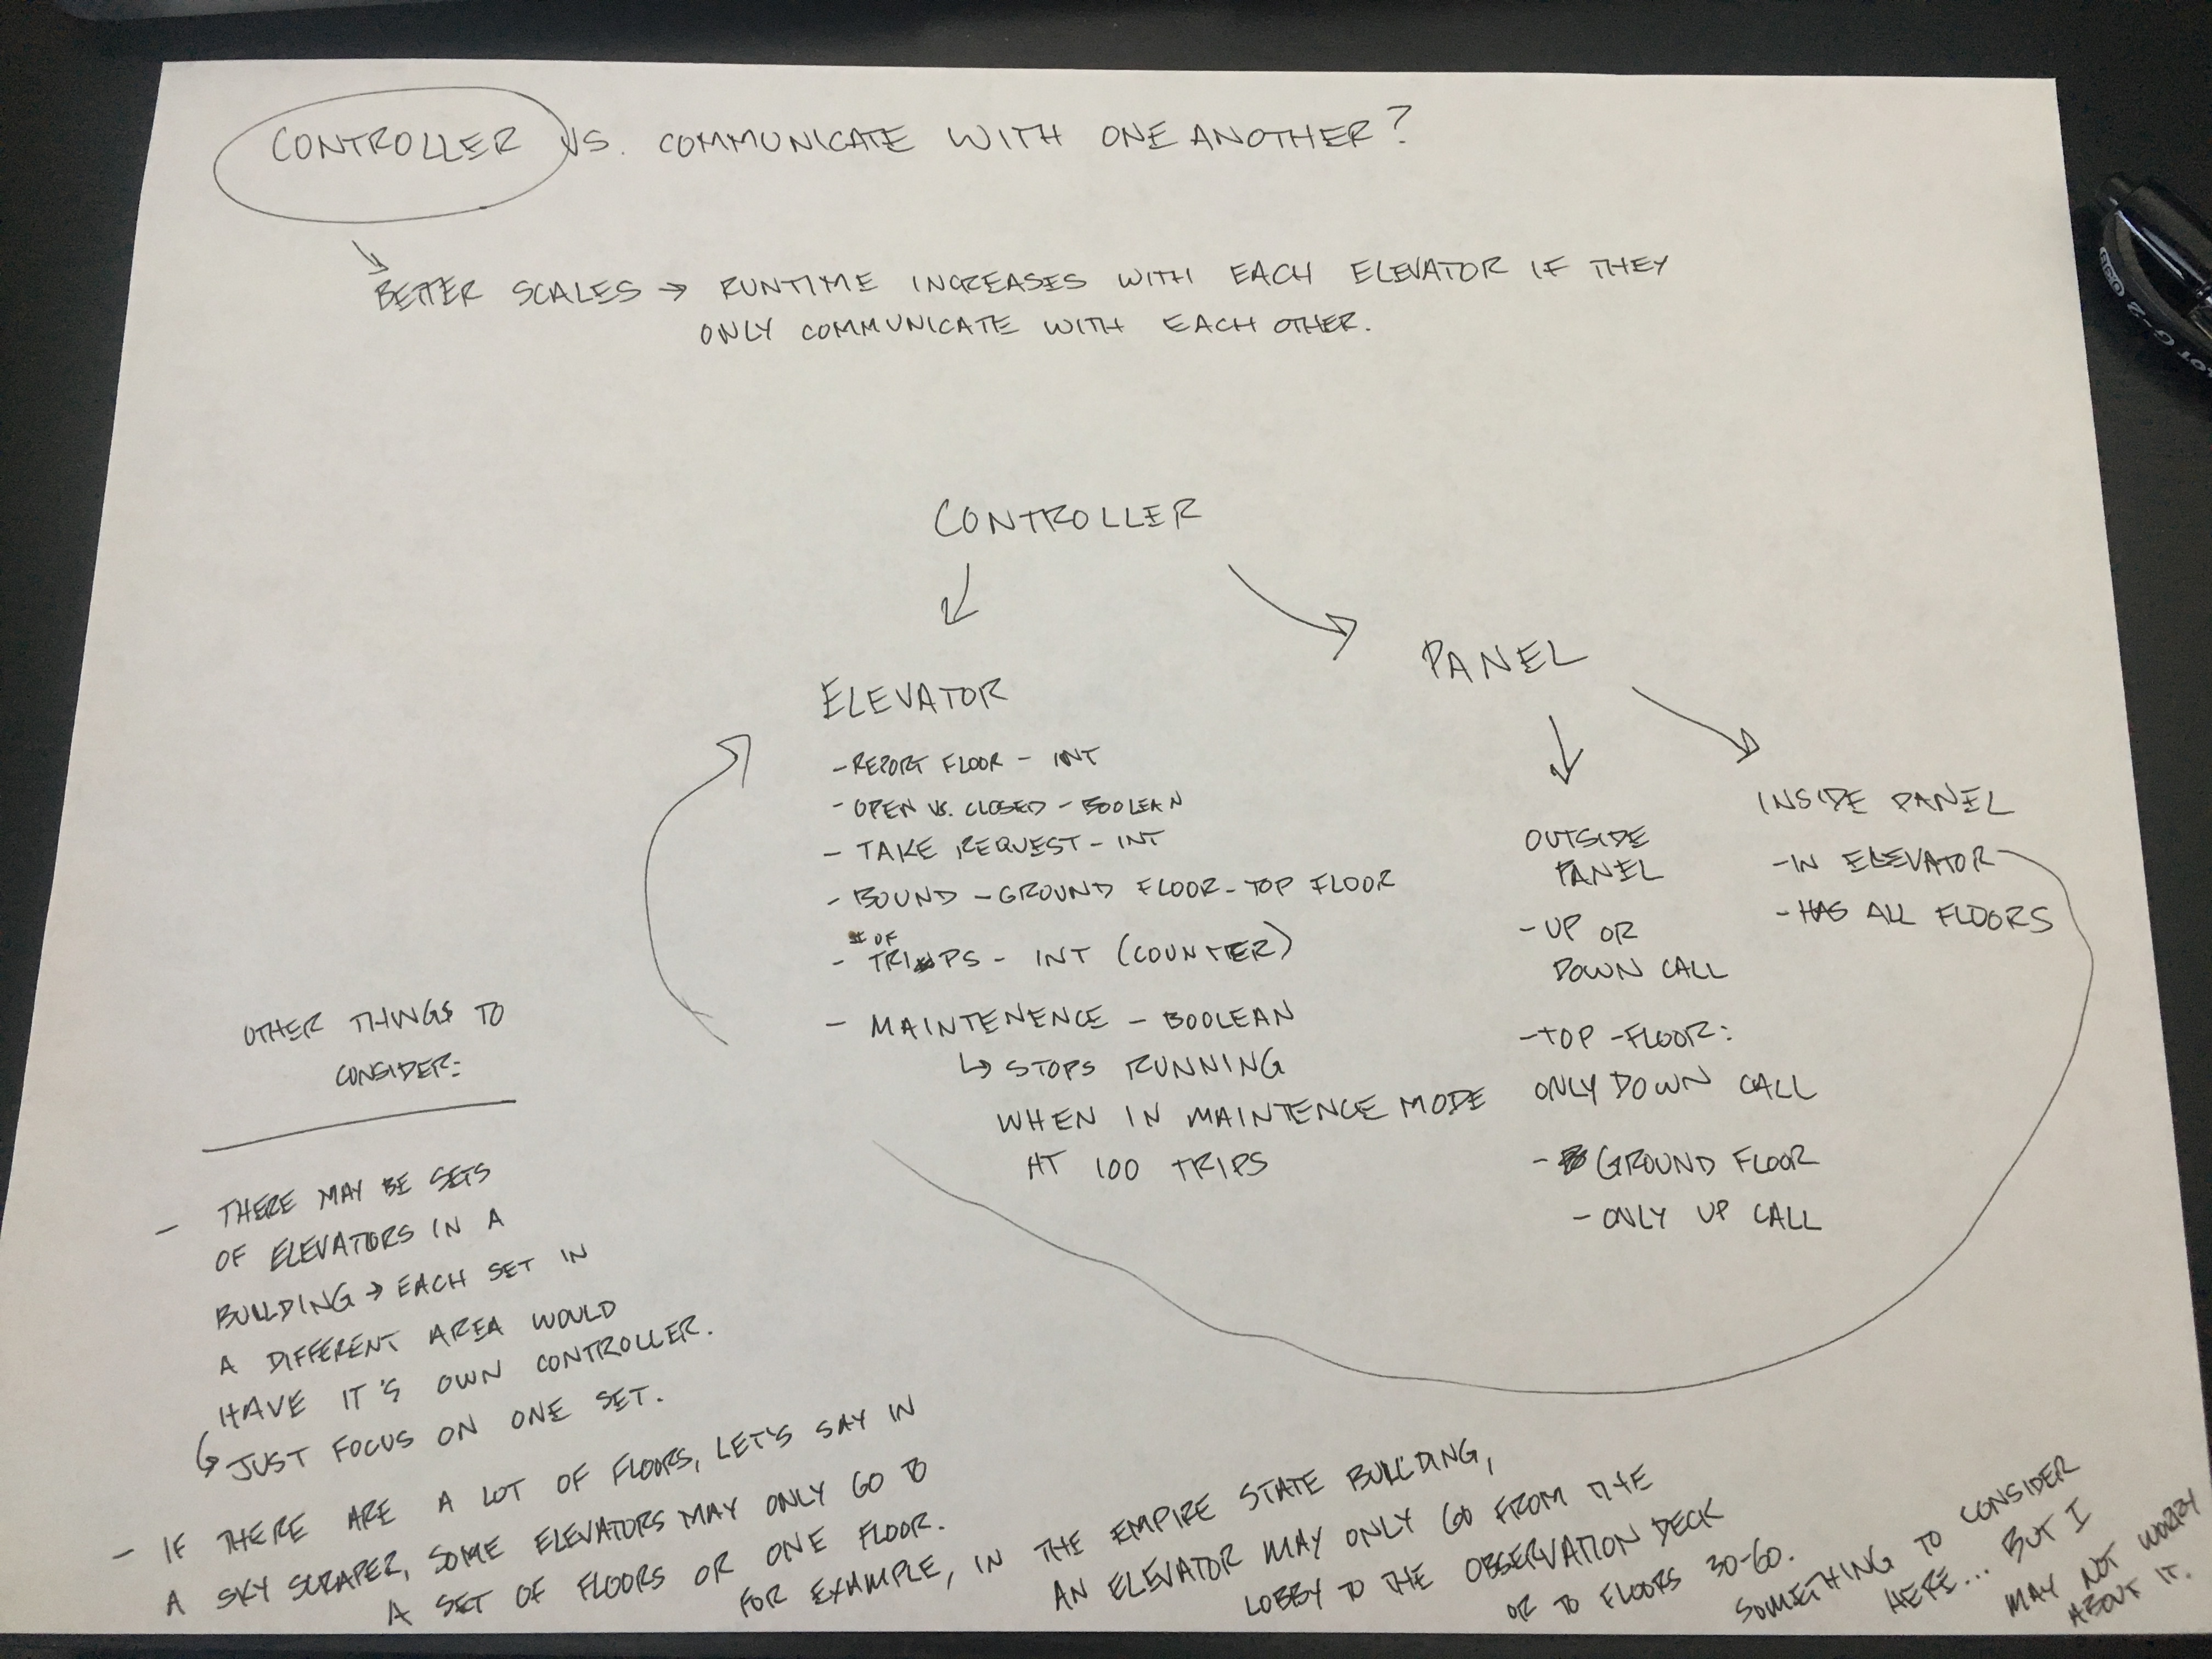 CONTROLLER VS. COMMUNICATE WITH ONE ANOTHER?
BETTER SCALES → RUNTIME INCREASES WITH EACH ELEVATOR IF THEY
ONLY COMMUNICATE WITH EACH OTHER.
CONTROLLER
ELEVATOR
- REPORT FLOOR - INT
- OPEN VS. CLOSED - BOOLEAN
- TAKE REQUEST - INT
- BOUND - GROUND FLOOR - TOP FLOOR
# OF
- TRIPS - INT (COUNTER)
- MAINTENENCE - BOOLEAN
↳ STOPS RUNNING
WHEN IN MAINTENCE MODE
AT 100 TRIPS
PANEL
OUTSIDE
PANEL
- UP OR
DOWN CALL
- TOP - FLOOR:
ONLY DOWN CALL
- GROUND FLOOR
- ONLY UP CALL
INSIDE PANEL
- IN ELEVATOR
- HAS ALL FLOORS
OTHER THINGS TO
CONSIDER:
- THERE MAY BE SETS
OF ELEVATORS IN A
BUILDING → EACH SET IN
A DIFFERENT AREA WOULD
HAVE IT'S OWN CONTROLLER.
↳ JUST FOCUS ON ONE SET.
- IF THERE ARE A LOT OF FLOORS, LET'S SAY IN
A SKY SCRAPER, SOME ELEVATORS MAY ONLY GO TO
A SET OF FLOORS OR ONE FLOOR.
FOR EXAMPLE, IN THE EMPIRE STATE BUILDING,
AN ELEVATOR MAY ONLY GO FROM THE
LOBBY TO THE OBSERVATION DECK
OR TO FLOORS 30-60.
SOMETHING TO CONSIDER
HERE... BUT I
MAY NOT WORRY
ABOUT IT.
G-2